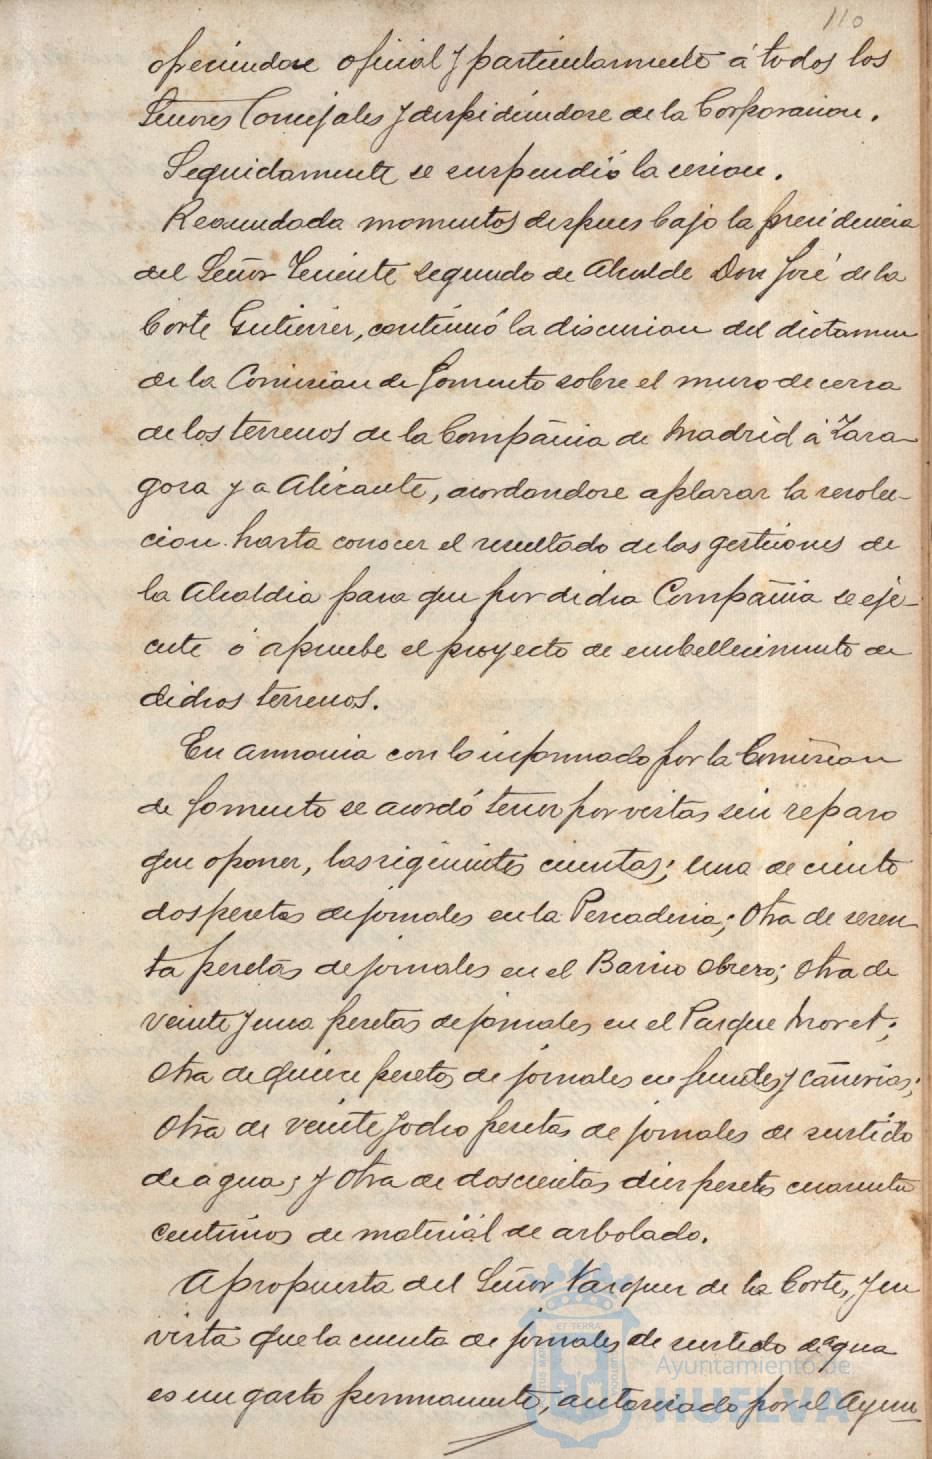 110
ofreciendose oficial y particularmente á todos los
Señores Concejales y despidiendose de la Corporacion.
Seguidamente se suspendió la sesion.
Reanudada momentos despues bajo la presidencia
del Señor Teniente segundo de Alcalde Don José de la
Corte Gutierrez, continuó la discusion del dictamen
de la Comision de Fomento sobre el muro de cerra
de los terrenos de la Compañia de Madrid á Zara-
goza y a Alicante, acordandose aplazar la resolu-
cion hasta conocer el resultado de las gestiones de
la Alcaldia para que por dicha Compañia se eje-
cute ó apruebe el proyecto de embellecimiento de
dichos terrenos.
En armonia con lo informado por la Comision
de Fomento se acordó tener por vistas sin reparo
que oponer, las siguientes cuentas; una de ciento
dos pesetas de jornales en la Pescaderia; otra de sesen-
ta pesetas de jornales en el Barrio Obrero; otra de
veinte y una pesetas de jornales en el Parque Moret;
otra de quince pesetas de jornales en fuentes y cañerias;
otra de veinte y ocho pesetas de jornales de surtido
de agua; y otra de doscientas diez pesetas cuarenta
centimos de material de arbolado.
A propuesta del Señor Vazquez de la Corte, y en
vista que la cuenta de jornales de surtido de agua
es un gasto permanente, autorizado por el Ayun
Ayuntamiento de
HUELVA